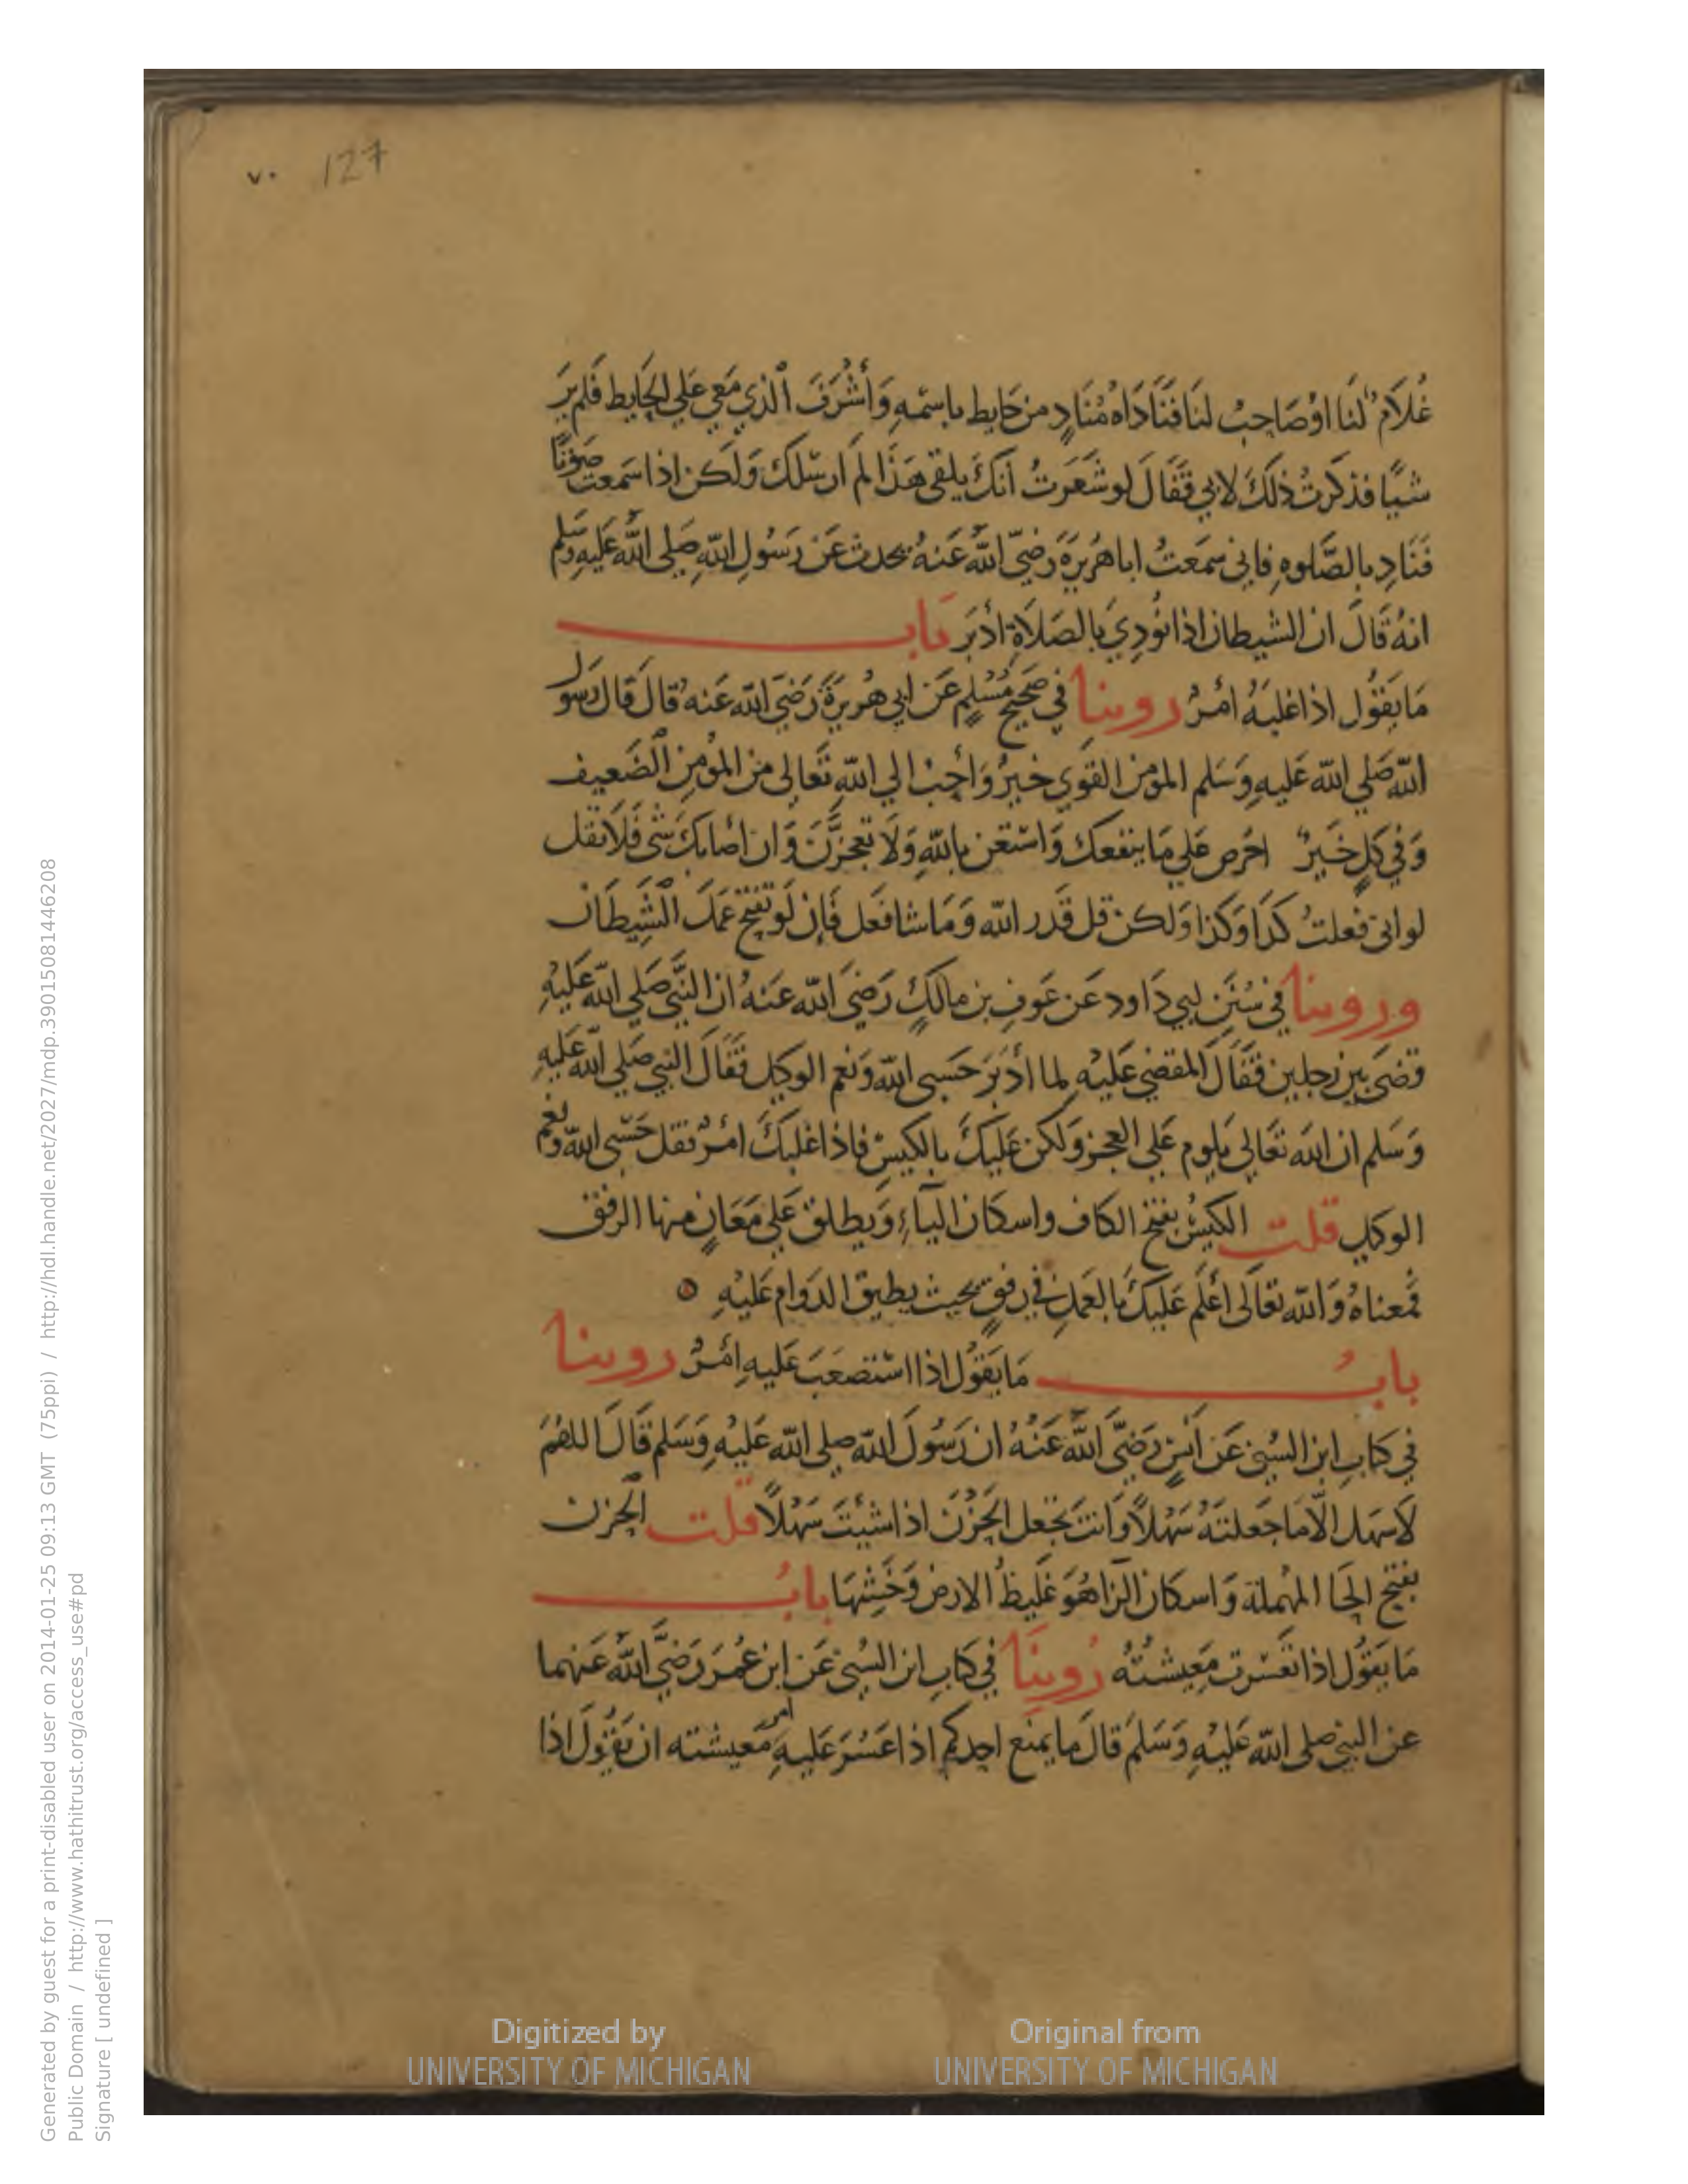 ٧٠ 127
غُلَامٌ لنَا اوْ صَاحِبٌ لنَا فَنَادَاهُ مُنَادٍ من حَايط باسْمهِ وَأَشْرَفَ الذي مَعي عَلي الحَايط فَلم يَرَ
شيًا فذكرتُ ذلكَ لابي فَقَالَ لو شَعَرتُ أنكَ يلقى هَذَا لم ارسلكَ وَلَكن اذا سَمعتَ صَوْتًا
فَنَادِ بالصَّلوهِ فاني سَمعَتُ ابا هُرَيرَةَ رَضيَ اللهُ عَنهُ يحدث عَن رَسُولِ اللهِ صَلي اللهُ عَليهِ وَسلم
انهُ قَالَ ان الشيطان اذا نُودِيَ بالصَلَاةِ ادْبَرَ بَاب
مَا يَقوُل اذا غلبَهُ امْرٌ روينا في صَحيحِ مُسْلمٍ عَن ابي هُريرَةَ رَضيَ الله عَنه قالَ قَالَ رَسوُل
اللهِ صَلي الله عَليهِ وَسَلم المومن القوَي خيرٌ وَاحَبُ الي اللهِ تَعَالى من الموُمنِ الضَعيف
وَفي كلٍ خَيرٌ احرص عَلي مَا ينفعكَ وَاستَعن باللهِ وَلَا تعجزَنَّ وَان اصابكَ شي فَلَا تقل
لو اني فعلتُ كذَا وَكذا وَلكن قل قَدر الله وَمَا شا فعَل فَإن لَو تَفتح عمَلَ الشيطَان
ورويْنَا في سُنَنِ ابي دَاود عَن عَوفِ بن مالكٍ رَضيَ الله عَنهُ ان النَّبيَّ صَلي الله عَليْهِ
قضى بين رَجلين فَقَالَ المقضي عَليْهِ لما أدْبَرَ حَسبي الله وَنعم الوكيل فَقَالَ النبي صَلي الله عَليهِ
وَسَلم ان الله تَعَالي يَلوم عَلي العجز وَلكن عَليكَ بالكيسِ فاذا غلبكَ امْرٌ فقل حَسْبي الله وَنعم
الوكيل قلت الكيسُ بفتح الكاف واسكان اليآءِ وَيطلق عَلي مَعَانٍ منها الرفق
فمعناهُ وَالله تعَالى اعْلَم عَليكَ بالعَملِ في رفقٍ بحيث يطيق الدوَام عَليْهِ ٥
بابُ مَا يَقوُل اذا استصعَبَ عَليهِ امْرٌ روينا
في كتابِ ابن السُني عَن انَسٍ رَضيَ اللهُ عَنْهُ ان رَسُولَ الله صلي الله عَليْهِ وَسَلم قَالَ اللهُمَ
لَا سَهل الّا مَا جَعلتَهُ سَهْلًا وَانتَ تجْعَل الحَزْنَ اذا شيْتَ سَهْلًا قلت الحزن
بفتح الحَا المهْملة وَاسكان الزا هُوَ غَليظُ الارض وَخَشِنُهَا بابُ
مَا يَقوُل اذا تعَسّرت مَعِيشتُه رُوينَا في كتابِ ابن السُني عَن ابن عُمَرَ رَضيَ اللهُ عَنهما
عن النبي صلي الله عَليْهِ وَسَلمَ قالَ ما يمنَع احدكم اذا عَسُرَ عَليهِ امر مَعيشته ان يَقوُلَ اذا
Digitized by
UNIVERSITY OF MICHIGAN
Original from
UNIVERSITY OF MICHIGAN
Generated by guest for a print-disabled user on 2014-01-25 09:13 GMT (75ppi) / http://hdl.handle.net/2027/mdp.39015081446208
Public Domain / http://www.hathitrust.org/access_use#pd
Signature [ undefined ]